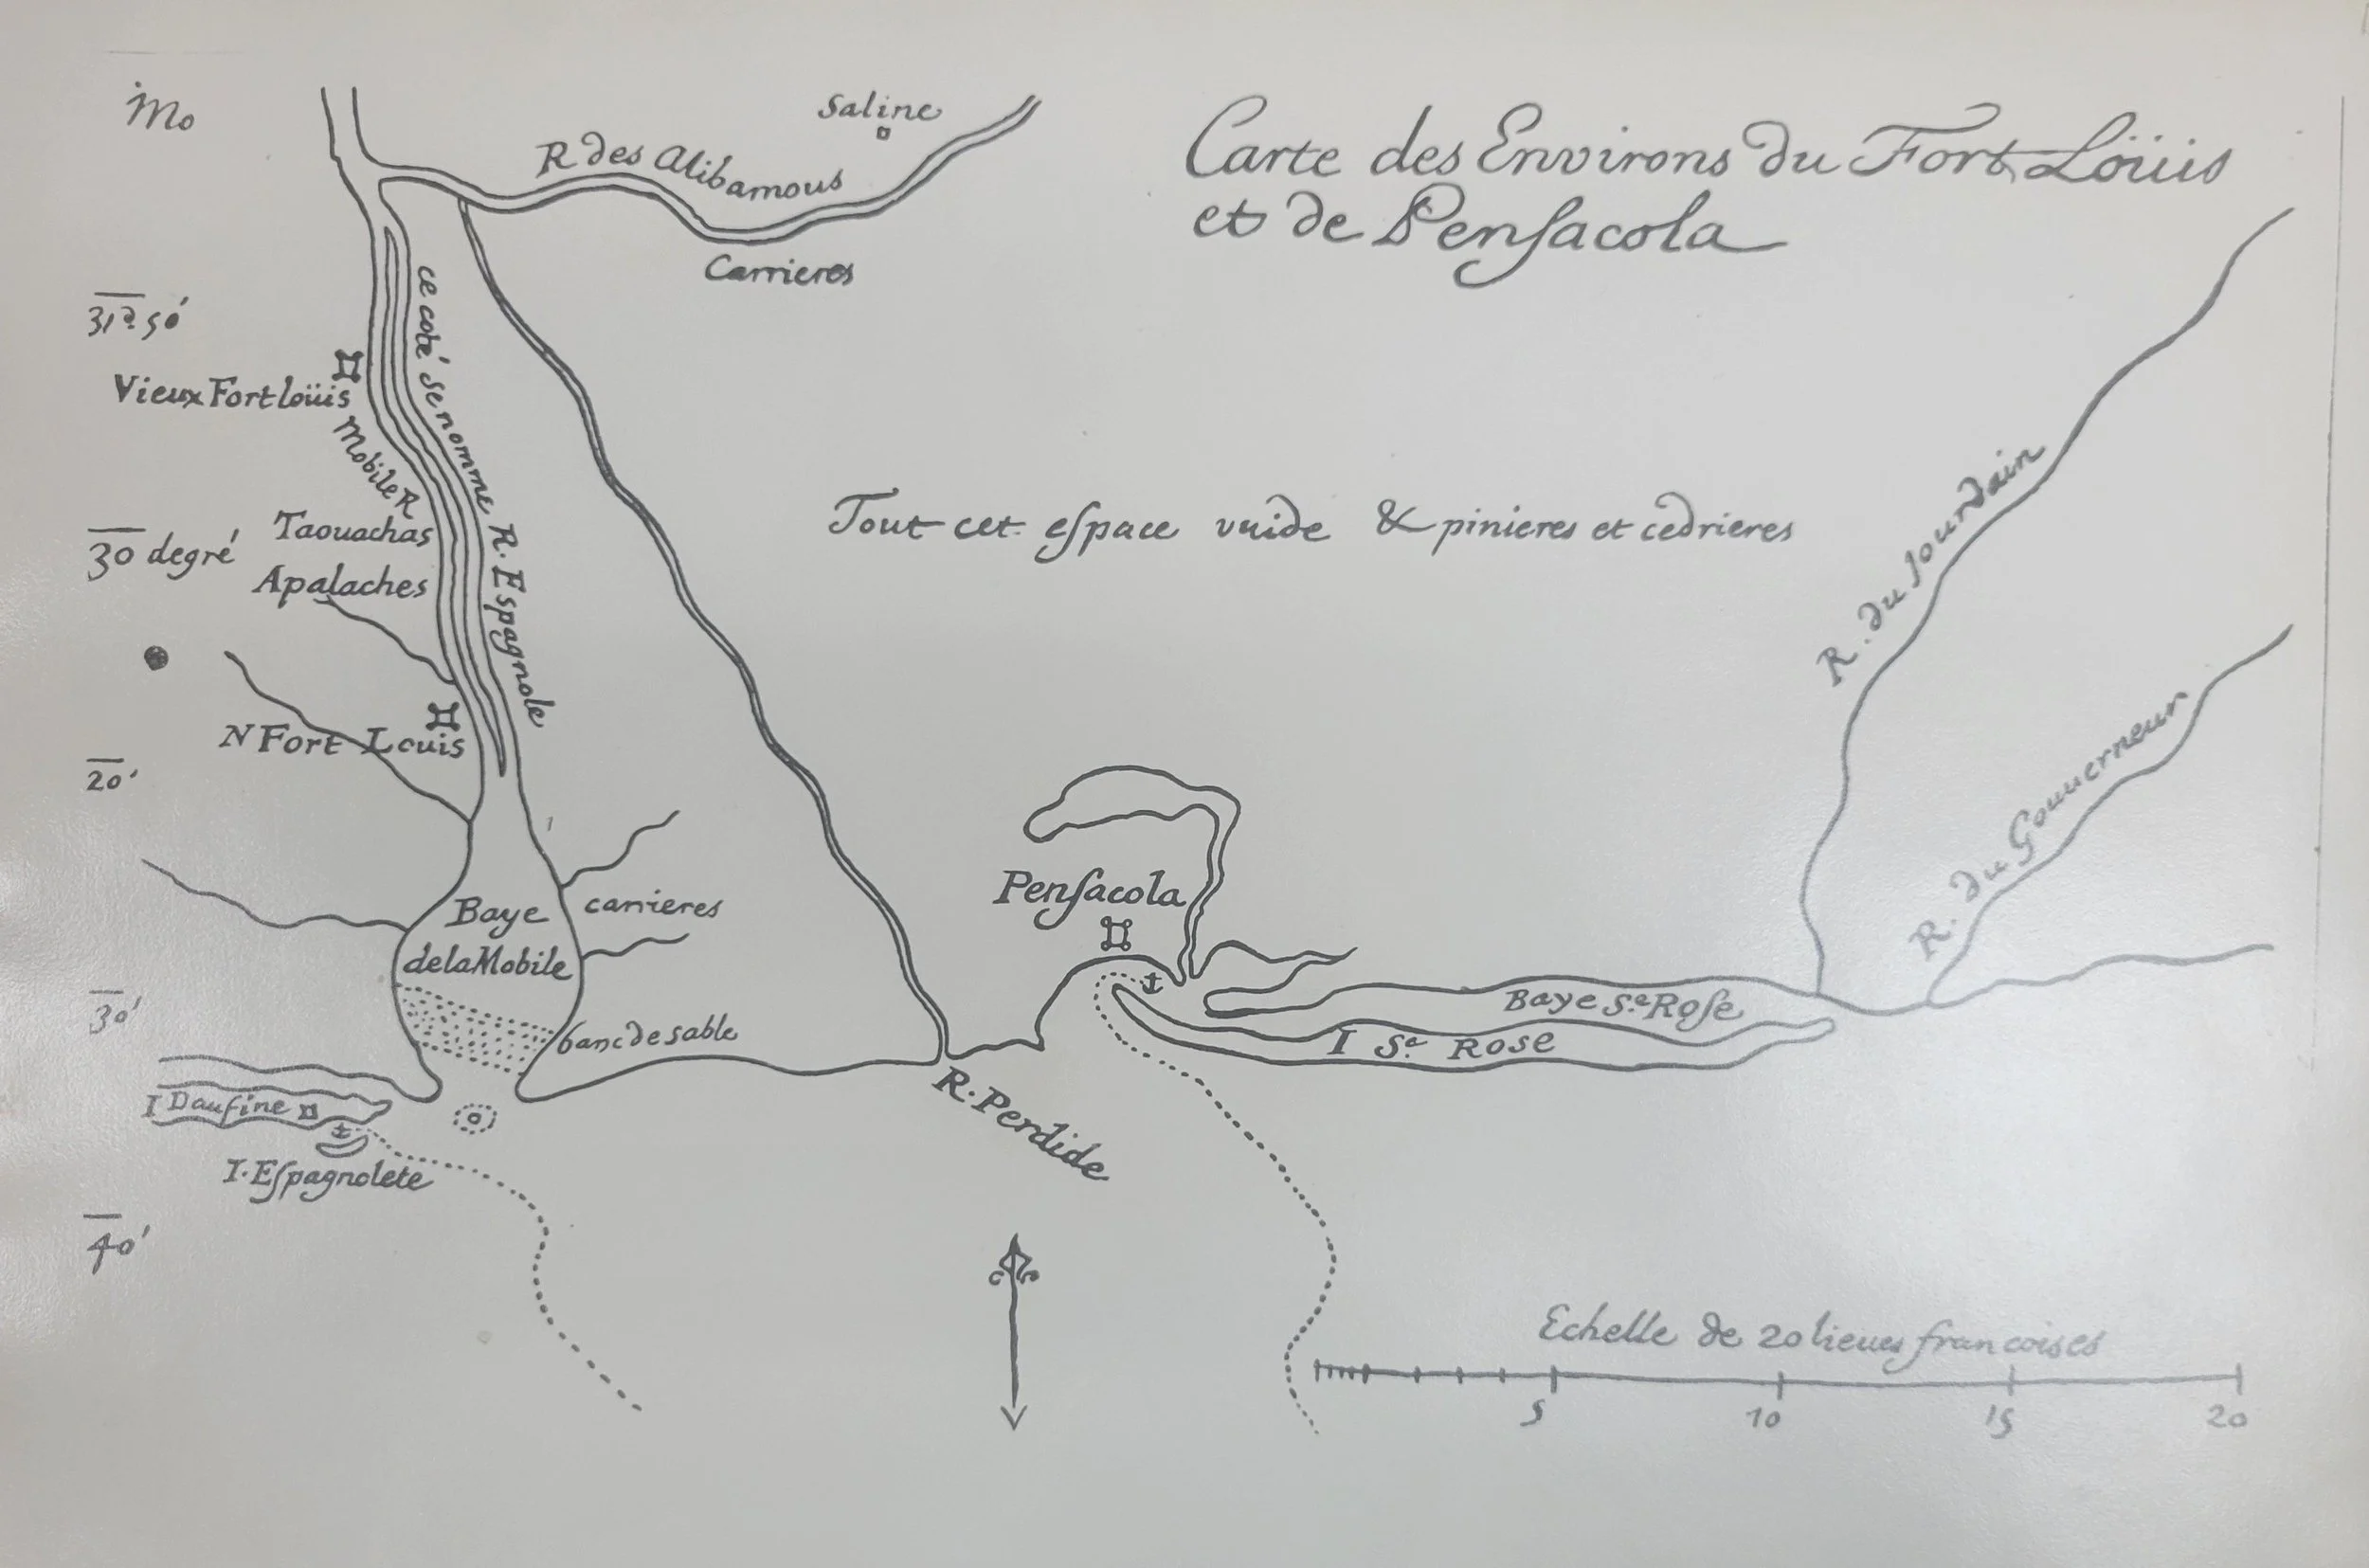 Carte des Environs du Fort Loüis
et de Penſacola
Mo
Saline
R des Alibamous
Carrieres
31ᵈ 50'
ce coté se nomme R. Espagnole
Vieux Fort loüis
Mobile R
Taouachas
30 degré
Apalaches
Tout cet eſpace vuide & pinieres et cedrieres
R. du Jourdain
N Fort Louis
20'
R. du Gouuerneur
Penſacola
Baye
de la Mobile
carrieres
30'
banc de sable
Baye Sᵉ Roſe
I Sᵉ Rose
I Daufine
R. Perdide
I. Eſpagnolete
40'
Echelle de 20 lieues francoises
5 10 15 20